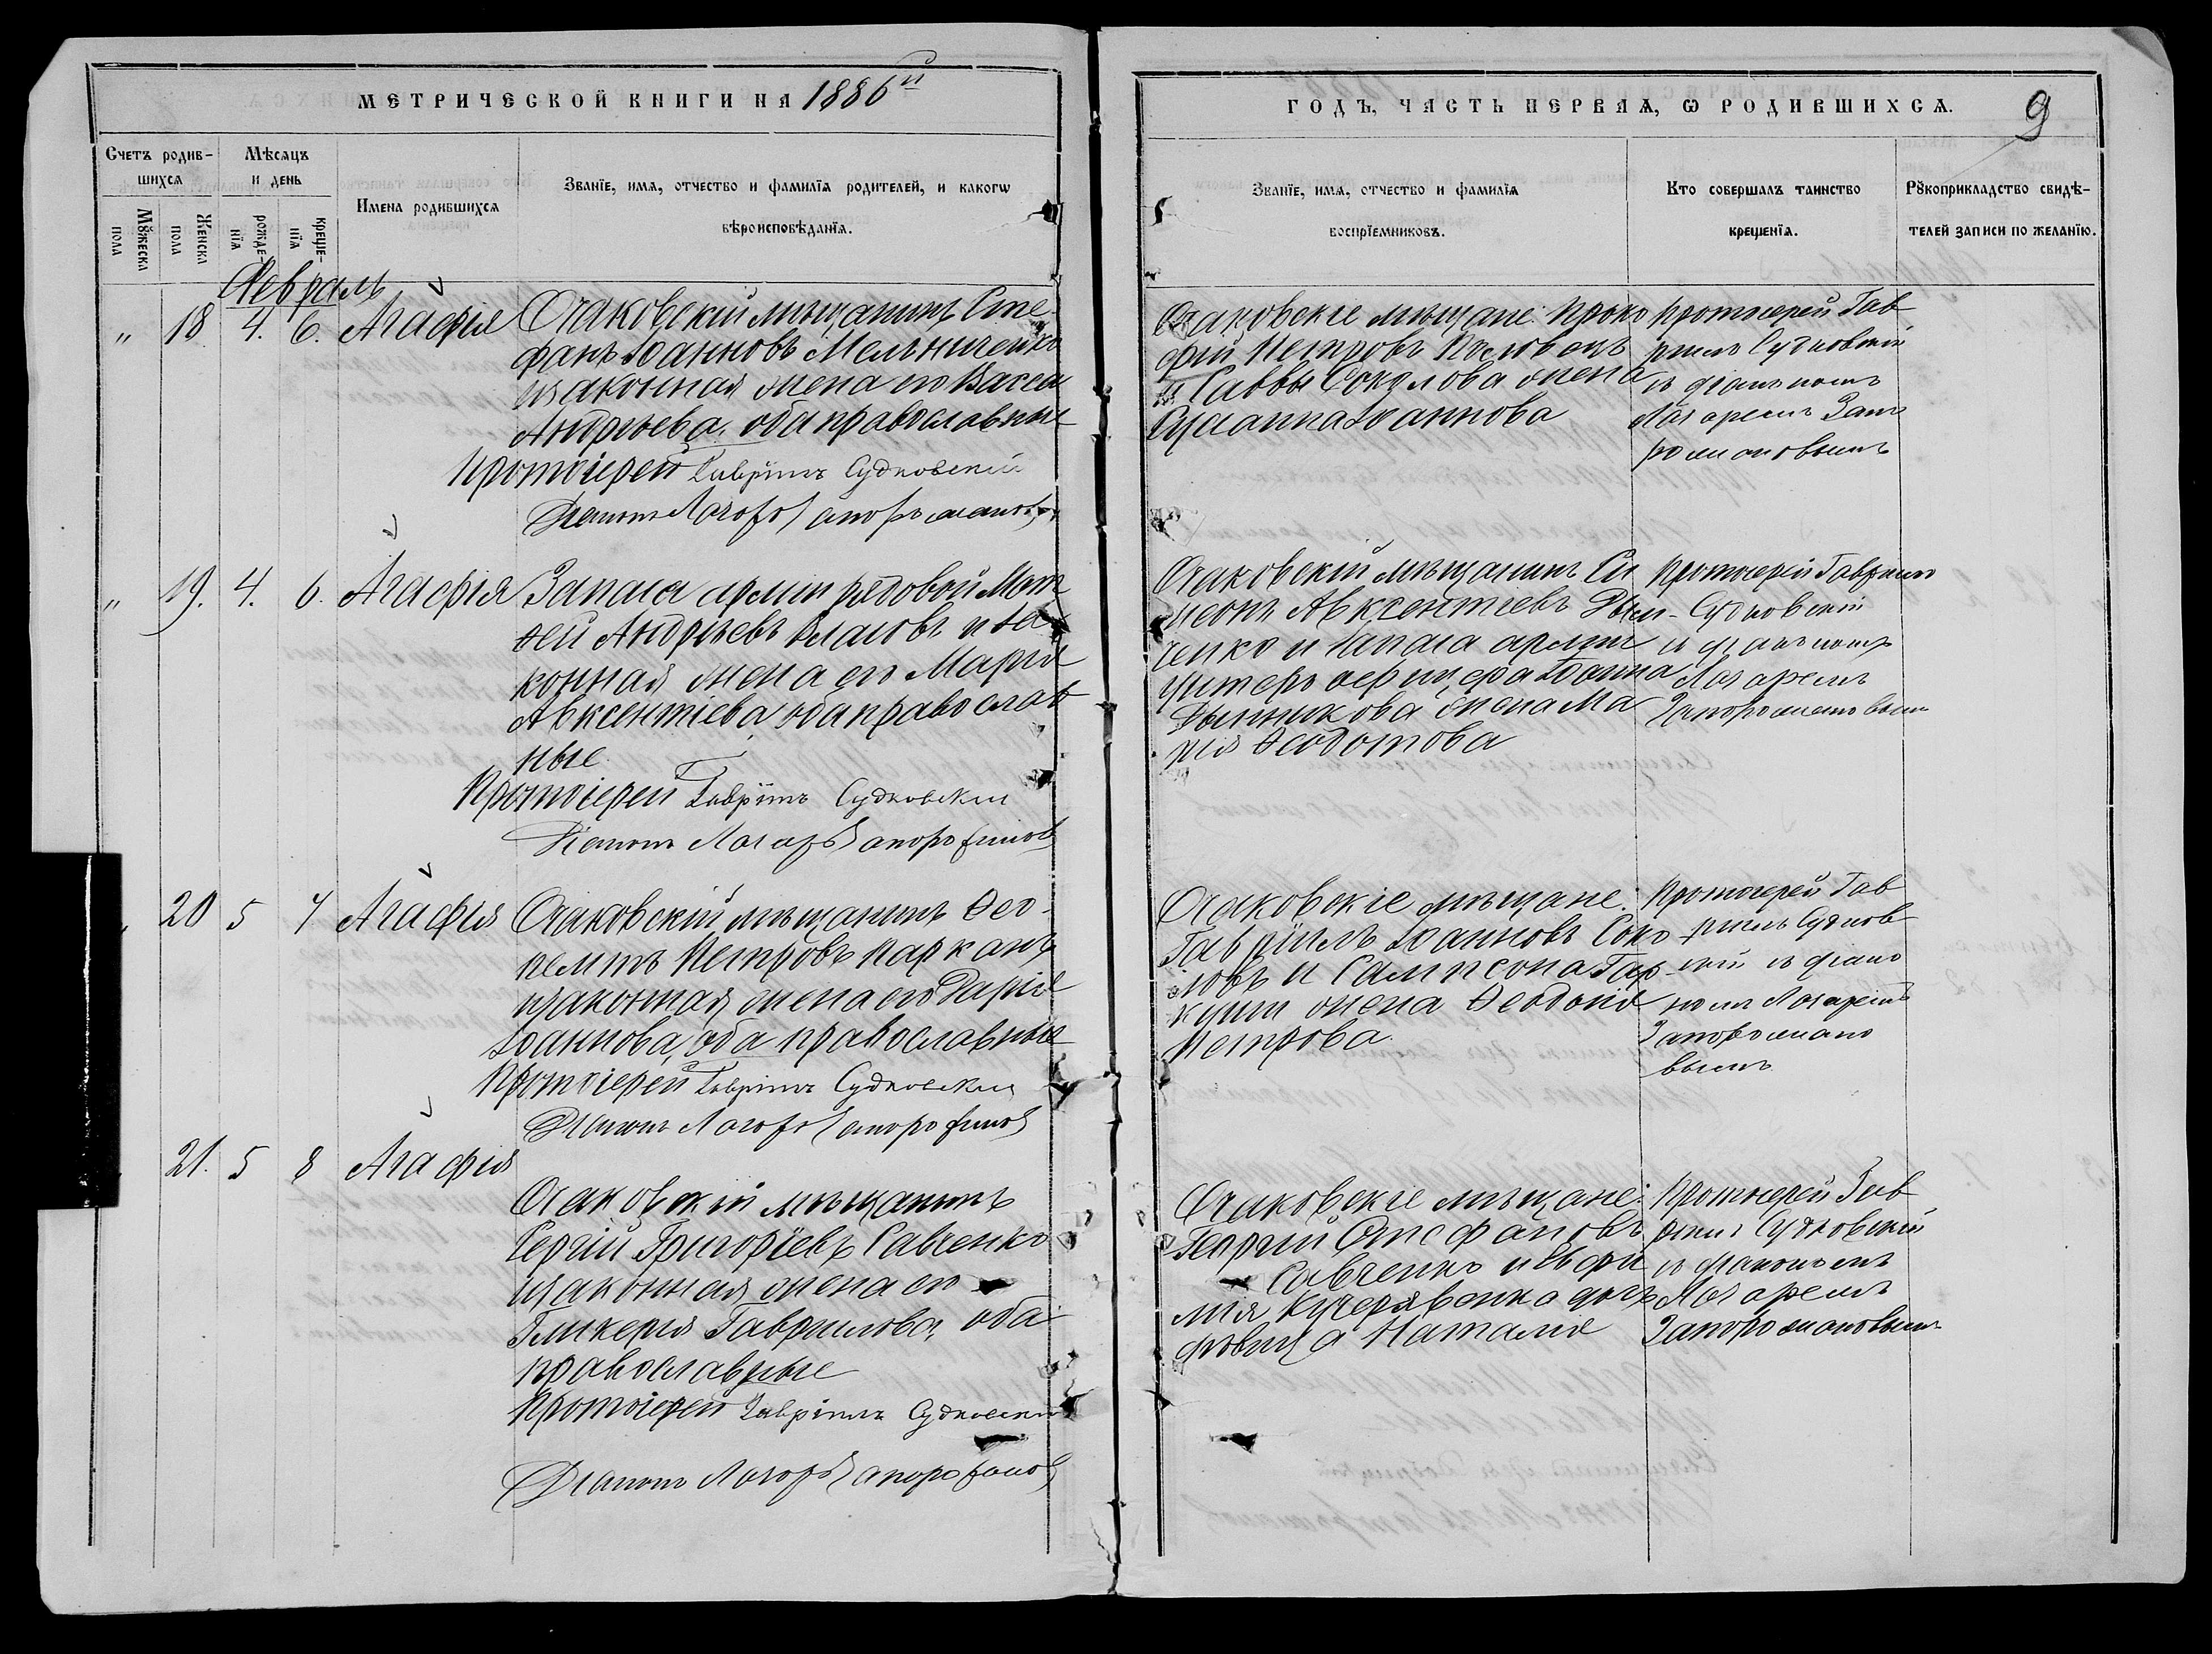 МЕТРИЧЕСКОЙ КНИГИ НА 1886й
ГОДЪ, ЧАСТЬ ПЕРВАЯ, Ѡ РОДИВШИХСЯ.
9
Счетъ родив-
шихся
Мѣсяцъ
и день
Мꙋжеска
пола
Женска
пола
рожде-
нїя
креще-
нїя
Имена родившихся
Званїе, имя, отчество и фамилїя родителей, и какогѡ
вѣроисповѣданїя.
Званїе, имя, отчество и фамилїя
воспрїемниковъ.
Кто совершалъ таинство
крещенїя.
Рꙋкоприкладство свидѣ-
телей записи по желанїю.
Февраль
" 18 4. 6. Агафія
Очаковскій мѣщанинъ Сте
фанъ Іоанновъ Мельниченко
и законная жена его Васса
Андреева, оба православные
Протоіерей Гавріилъ Судковскій
Діаконъ Лазарь
Очаковскіе мѣщане: Проко
фій Петровъ
и Саввы Соколова жена
Сусанна Іоаннова
Протоіерей Гав
ріилъ Судковскій
съ діакономъ
Лазаремъ Запо
рожановымъ
" 19. 4. 6. Агафія
Запаса арміи рядовой Мат
ѳей Андреевъ Власовъ и за
конная жена его Марія
Авксентіева, оба православ
ные
Протоіерей Гавріилъ Судковскій
Діаконъ Лазарь
Очаковскій мѣщанинъ Си
меонъ Авксентіевъ
ченко и запаса арміи
унтеръ офицера Іоанна
жена Ма
рія Ѳеодотова
Протоіерей Гавріилъ
Судковскій
съ діакономъ
Лазаремъ
Запорожановым
20 5 7 Агафія
Очаковскій мѣщанинъ Ѳео-
пемптъ Петровъ Парканъ
и законная жена его Дарія
Іоаннова, оба православные
Протоіерей Гавріилъ Судковскій
Діаконъ Лазарь
Очаковскіе мѣщане:
Гавріилъ Іоанновъ Соко
ловъ и Сампсона Гар
куши жена Ѳеодосія
Петрова
Протоіерей Гав
ріилъ Судков
скій съ діако
номъ Лазаремъ
Запорожано
вымъ
21. 5 8 Агафія
Очаковскій мѣщанинъ
Сергій Григоріевъ Савченко
и законная жена его
Гликерія Гавриилова, оба
православные
Протоіерей Гавріилъ Судковскій
Діаконъ Лазарь
Очаковскіе мѣщане:
Георгій Стефановъ
Савченко и Евфи
мія Кучерявенка дочь
дѣвица Наталія
Протоіерей Гав
ріилъ Судковскій
съ діакономъ
Лазаремъ
Запорожановымъ